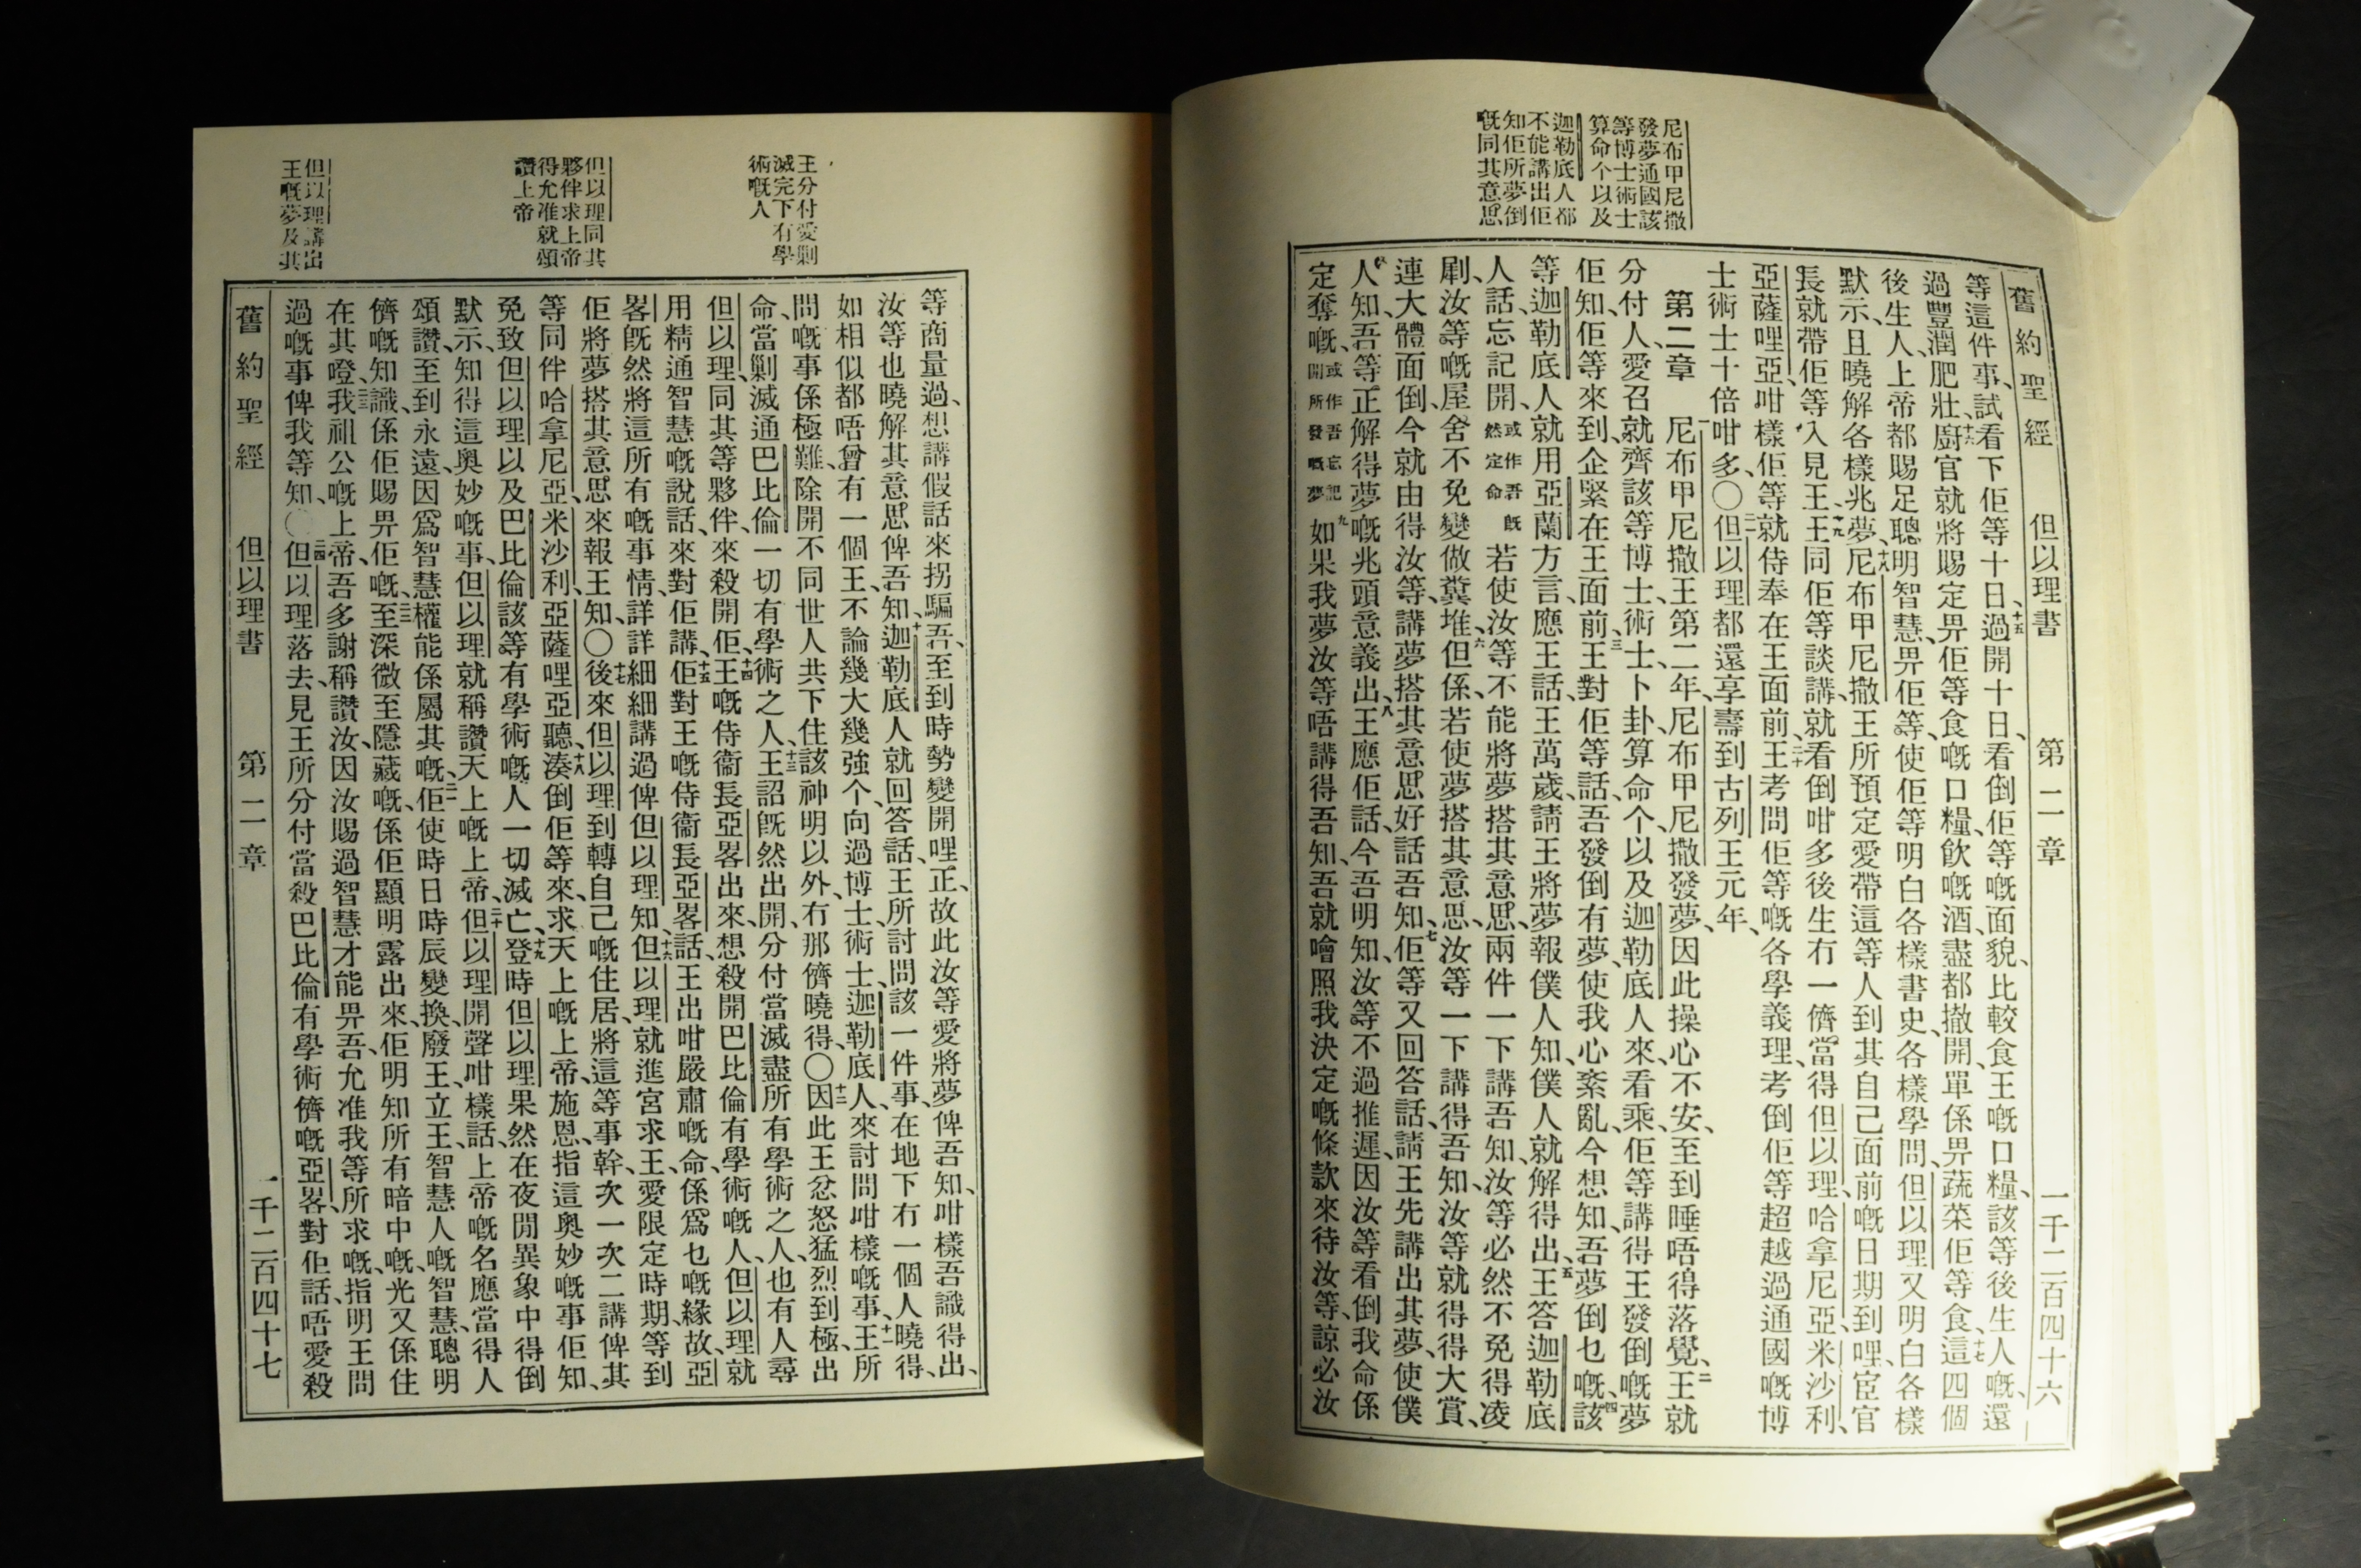 尼布甲尼撒
發夢通國該
等博士術士
算命个以及
迦勒底人都
不能講出佢
知佢所夢倒
嘅同其意思
舊約聖經 但以理書 第二章 一千二百四十六
等這件事、試看下佢等十日、十五過開十日、看倒佢等嘅面貌、比較食王嘅口糧、該等後生人嘅、還
過豐潤肥壯、十六廚官就將賜定畀佢等食嘅口糧、飲嘅酒、盡都撤開、單係畀蔬菜佢等食、十七這四個
後生人、上帝都賜足聰明智慧、畀佢等、使佢等明白各樣書史、各樣學問、但以理又明白各樣
默示、且曉解各樣兆夢、十八尼布甲尼撒王所預定愛帶這等人到其自己面前嘅日期、到哩、宦官
長就帶佢等入見王、十九王同佢等談講、就看倒咁多後生冇一儕當得但以理、哈拿尼亞、米沙利、
亞薩哩亞、咁樣佢等就侍奉在王面前、二十王考問佢等嘅各學義理、考倒佢等超越過通國嘅博
士術士十倍咁多〇二一但以理都還享壽到古列王元年、
第二章 一尼布甲尼撒王第二年、尼布甲尼撒發夢、因此操心不安、至到睡唔得落覺、二王就
分付人、愛召就齊該等博士、術士、卜卦算命个、以及迦勒底人來、看乘、佢等講得王發倒嘅夢
佢知、佢等來到、企緊在王面前、三王對佢等話、吾發倒有夢、使我心紊亂、今想知吾夢倒乜嘅、四該
等迦勒底人就用亞蘭方言、應王話、王萬歲、請王將夢報僕人知、僕人就解得出、五王答迦勒底
人話、忘記開、或作吾既然定命 若使汝等不能將夢搭其意思、兩件一下講吾知、汝等必然不免得凌
剮、汝等嘅屋舍不免變做糞堆、六但係、若使夢搭其意思、汝等一下講得吾知、汝等就得得大賞、
連大體面倒、今就由得汝等、講夢搭其意思好話吾知、七佢等又回答話、請王先講出其夢、使僕
人知、吾等正解得夢嘅兆頭意義出、八王應佢話、今吾明知、汝等不過推遲、因汝等看倒我命係
定奪嘅、或作吾忘記開所發嘅夢 九如果我夢汝等唔講得吾知、吾就噲照我決定嘅條款來待汝等、諒必汝
王分付愛剿
滅完下有學
術嘅人
但以理同其
夥伴求上帝
得允准就頌
讚上帝
但以理講出
王嘅夢及其
等商量過、想講假話來拐騙吾、至到時勢變開哩正、故此汝等愛將夢俾吾知、咁樣吾識得出、
汝等也曉解其意思俾吾知、十迦勒底人就回答話、王所討問該一件事、在地下冇一個人曉得、
如相似都唔曾有一個王、不論幾大幾強个、向過博士、術士、迦勒底人、來討問咁樣嘅事、十一王所
問嘅事係極難、除開不同世人共下住該神明以外、冇那儕曉得、〇十二因此王忿怒猛烈到極、出
命、當剿滅通巴比倫一切有學術之人、十三王詔既然出開、分付當滅盡所有學術之人、也有人尋
但以理、同其等夥伴、來殺開佢、十四王嘅侍衞長亞畧出來、想殺開巴比倫有學術嘅人、但以理就
用精通智慧嘅說話、來對佢講、十五佢對王嘅侍衞長亞畧話、王出咁嚴肅嘅命、係爲乜嘅緣故、亞
畧既然將這所有嘅事情、詳詳細細講過俾但以理知、十六但以理就進宮求王、愛限定時期、等到
佢將夢搭其意思來報王知、〇十七後來但以理到轉自己嘅住居、將這等事幹、次一次二講俾其
等同伴哈拿尼亞、米沙利、亞薩哩亞聽、十八湊倒佢等來、求天上嘅上帝、施恩、指這奧妙嘅事佢知、
免致但以理以及巴比倫該等有學術嘅人一切滅亡、十九登時但以理果然在夜間異象中得倒
默示、知得這奧妙嘅事、但以理就稱讚天上嘅上帝、二十但以理開聲咁樣話、上帝嘅名應當得人
頌讚、至到永遠、因爲智慧權能係屬其嘅、二一佢使時日時辰變換、廢王、立王、智慧人嘅智慧、聰明
儕嘅知識、係佢賜畀佢嘅、二二至深微至隱藏嘅、係佢顯明露出來、佢明知所有暗中嘅、光又係住
在其噔、二三我祖公嘅上帝、吾多謝稱讚汝、因汝賜過智慧才能畀吾、允准我等所求嘅、指明王問
過嘅事俾我等知、〇二四但以理落去、見王所分付當殺巴比倫有學術儕嘅亞畧、對佢話、唔愛殺
舊約聖經 但以理書 第二章 一千二百四十七